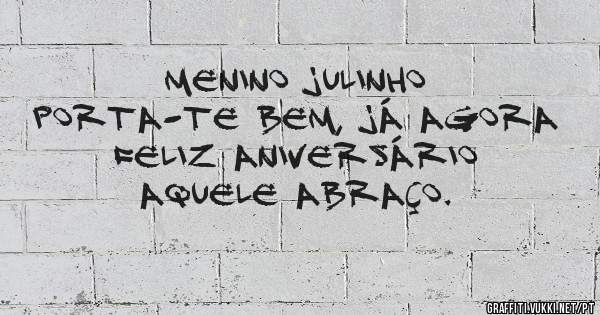 MENINO JULINHO
PORTA-TE BEM, JÁ AGORA
FELIZ ANIVERSÁRIO
AQUELE ABRAÇO.
GRAFFITI.VUKKI.NET/PT